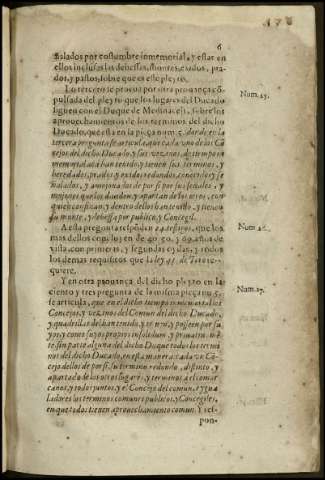 6
ñalados por costumbre inmemorial, y estar en
ellos inclusas las dehessas, montes, exidos, pra-
dos, y pastos, sobre que es este pleyto.
Lo tercero se prueva por otra provança cō-
pulsada del pleyto que los lugares del Ducado
siguen con el Duque de Medinaceli, sobre los
aprovechamientos de los terminos del dicho
Ducado, que està en la pieça num. 5. donde en la
tercera pregunta se articula, que cada uno de los Cō-
cejos del dicho Ducado, y sus vezinos, de tiempo in-
memorial acà han tenido, y tienen sus terminos, y
heredades, prados, y exidos redondos, conocidos, y se-
ñalados, y amojonados de por si por sus señales, y
mojones que los dividen, y apartan de los otros, con
quien confinan, y dentro dellos han tenido, y tienen
su monte, y dehessa por publico, y Concegil.
A esta pregunta responden 24. testigos, que los
mas dellos deponen de 40. 50. y 60. años de
vista, con primeras, y segundas oydas, y todos
los demas requisitos que la ley 41. de Toro re-
quiere.
Y en otra provança del dicho pleyto en la
ciento y tres pregunta de la misma pieça num. 5.
se articula, que en el dicho tiempo inmemorial los
Concejos, y vezinos del Comun del dicho Ducado,
y quadrillas del han tenido, y tienen, y posseen por su-
yos, y como suyos propios insolidum, y privativamē-
te sin parte alguna del dicho Duque todos los termi-
nos del dicho Ducado, en esta manera: cada un Cō-
cejo dellos de por si, su termino redondo, distinto, y
apartado de los otros lugares, y terminos a el comar-
canos, y todos juntos, y el Concejo del comun, y qua-
drilla los terminos comunes publicos, y Concegiles,
en que todos tienen aprovechamiento comun. Y res-
pon-
Num. 25.
Num. 26.
Num. 27.